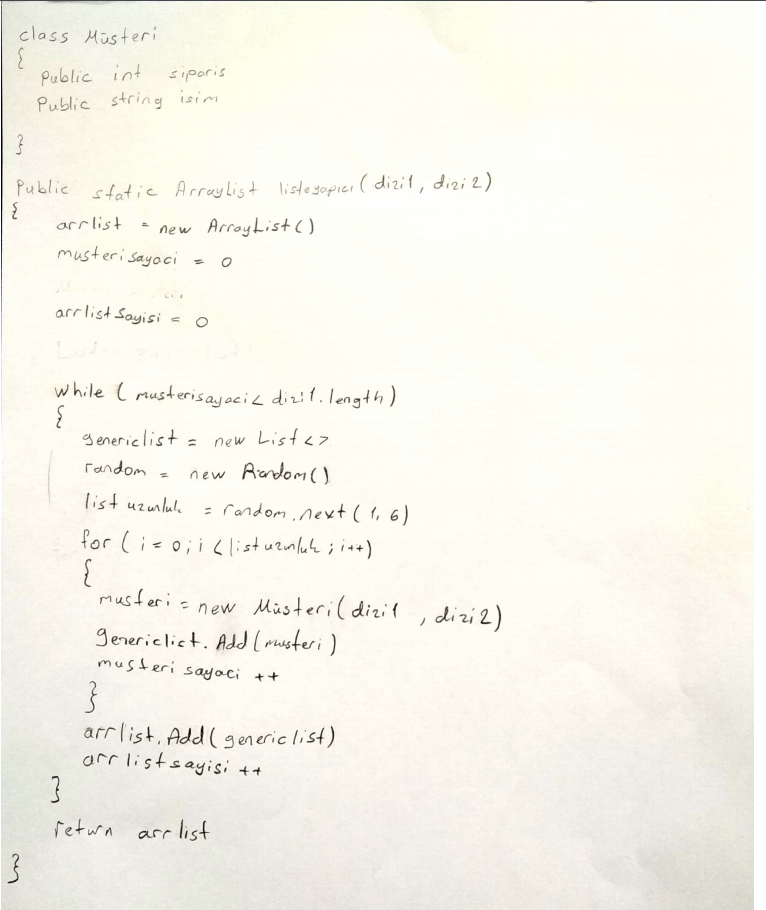 class Müsteri
{
public int siparis
Public string isim
}
Public static ArrayList listeyapici (dizi1, dizi2)
{
arrlist = new ArrayList()
musterisayaci = 0
arrlistSayisi = 0
while (musterisayaci < dizi1.length)
{
genericlist = new List<>
random = new Random()
list uzunluk = random.next(1,6)
for (i = 0; i < list uzunluk ; i++)
{
musteri = new Müsteri(dizi1 , dizi2)
genericlict. Add(musteri)
musteri sayaci ++
}
arrlist.Add(genericlist)
arrlistsayisi ++
}
return arrlist
}